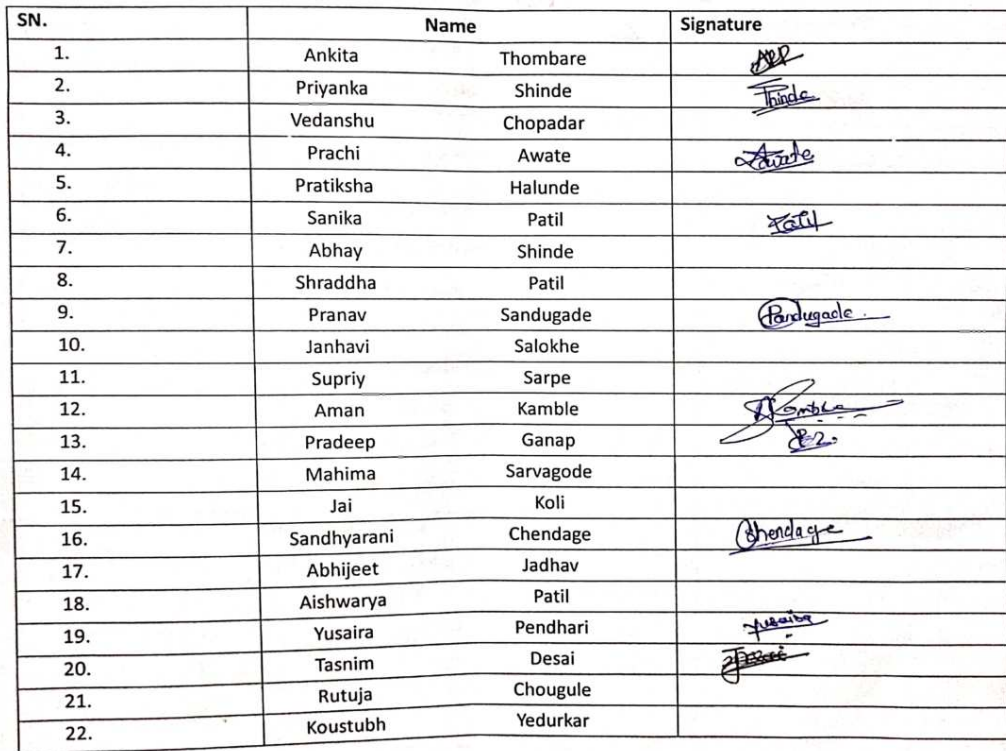 SN. Name Signature
1. Ankita Thombare
2. Priyanka Shinde Shinde
3. Vedanshu Chopadar
4. Prachi Awate Awate
5. Pratiksha Halunde
6. Sanika Patil Patil
7. Abhay Shinde
8. Shraddha Patil
9. Pranav Sandugade Pandugade
10. Janhavi Salokhe
11. Supriy Sarpe
12. Aman Kamble Kamble
13. Pradeep Ganap
14. Mahima Sarvagode
15. Jai Koli
16. Sandhyarani Chendage Chendage
17. Abhijeet Jadhav
18. Aishwarya Patil
19. Yusaira Pendhari Yusaira
20. Tasnim Desai
21. Rutuja Chougule
22. Koustubh Yedurkar